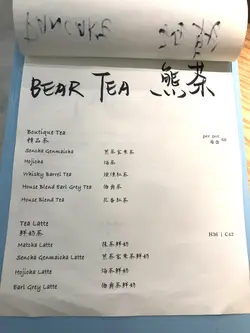 PANCAKES
BEAR TEA 熊茶
Boutique Tea
精品茶
per pot 68
每壺
Sencha Genmaicha 煎茶玄米茶
Hojicha 焙茶
Whisky Barrel Tea
House Blend Earl Grey Tea 伯爵茶
House Blend Tea
Tea Latte
鮮奶茶
H36 | C42
Matcha Latte 抹茶鮮奶
Sencha Genmaicha Latte 煎茶玄米茶鮮奶
Hojicha Latte 焙茶鮮奶
Earl Grey Latte 伯爵茶鮮奶